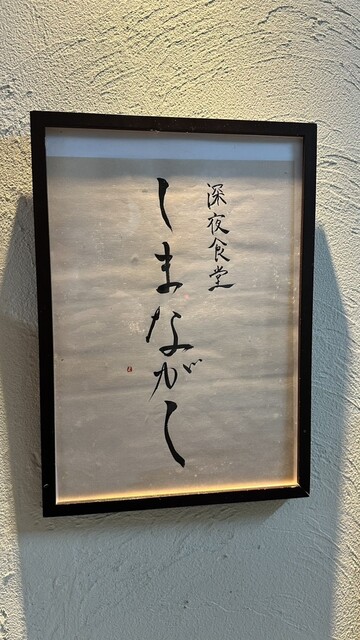 深夜食堂
しまながし